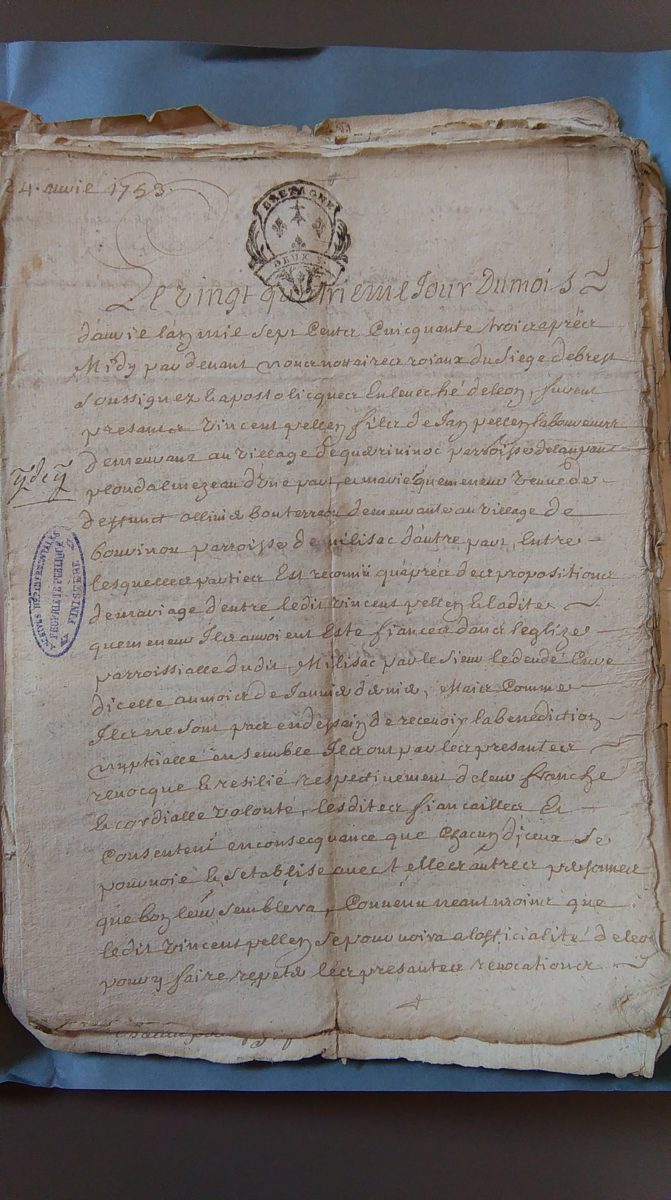 24. avvie 1753.
BRETAGNE
DEUX S.
Le vingt quatrieme Jour Dumois
davvie l'an mil sept Cents Cincquante trois aprés
Midy par devant nous nottaires roiaux du siege de brest
soussignez & apostolicques En leveché deleon, furent
presants vincent pellen fils de Jan pellen laboureurs
demeurant au village de parroisse de lanpaul
ploudalmezeau d'une part, et marie quemeneur veuve de
deffunct ollivié bouterraon demeurante au village de
bouvinou parroisse de milisac d'autre part, Entre
lesquelles parties Est reconnü quáprés des propositions
demariage d'entre ledit vincent pellen & ladite
quemeneur Ils auvoient Esté fiances dans leglize
parroissialle dudit Milisac par le sieur Cure
dicelle aumois de Janvié d'vié, Mais Comme
Ils ne sont pas en dessain de recevoir la benediction
nuptialle ensemble Ils ont par les presantes
revocque & resilié respectivement de leur franche
& cordialle volonté, lesdites fiancailles &
Consentent en consecquance que Chacun diceux se
pouvoie & setablise avec telles autres personnes
que bon leur semblera, Convenu neantmoins que
ledit vincent pellen se pouvoira a lofficialité de leon
pour y faire repeté les presantes revocations
ARCHIVES DEPARTEMENTALES
PROPRIETE PUBLIQUE
FINISTERE